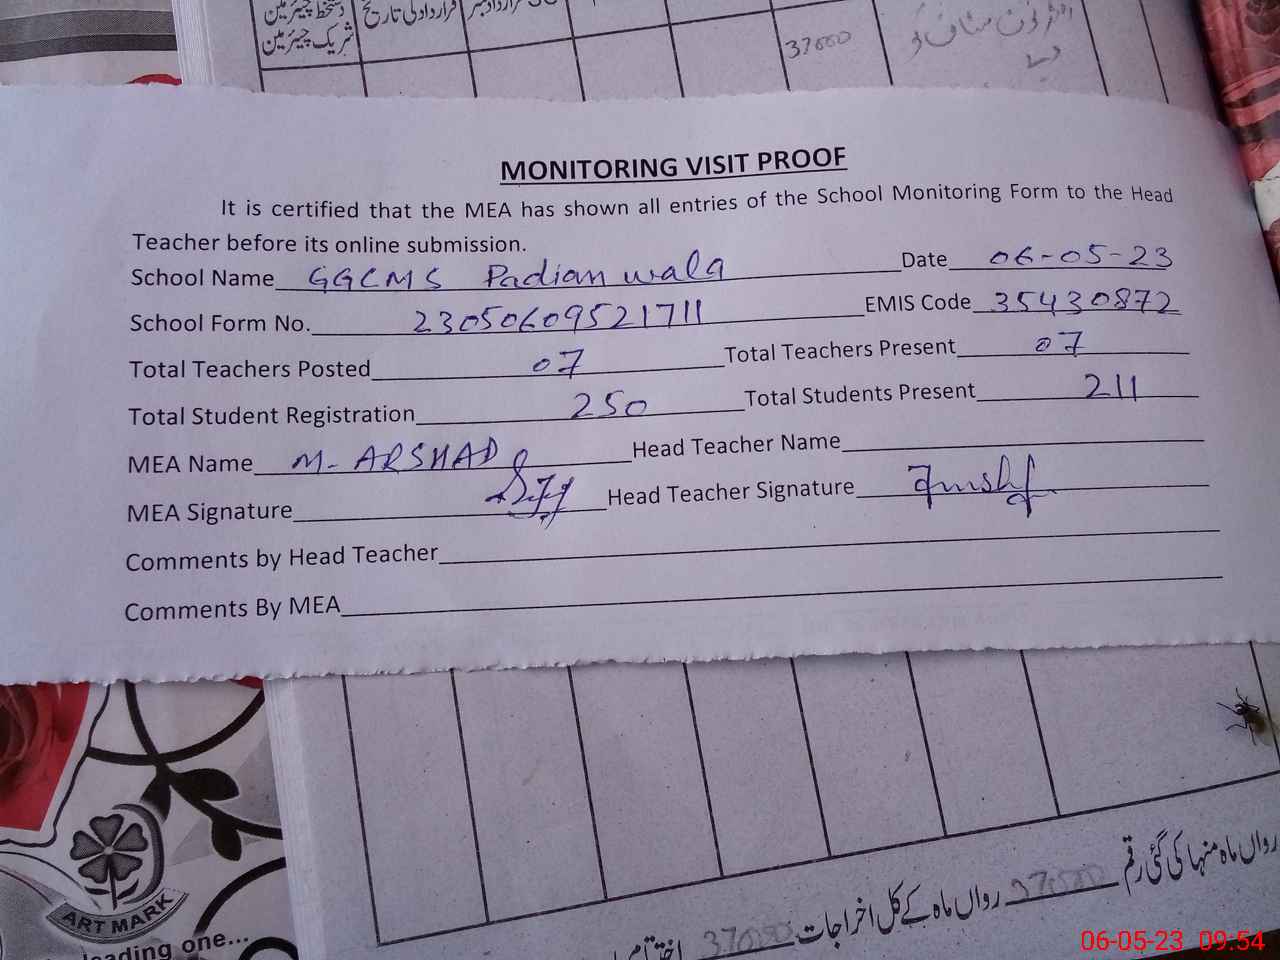 دستخط چیئرمین
شریک چیئرمین
قراردادکی تاریخ
37000
MONITORING VISIT PROOF
It is certified that the MEA has shown all entries of the School Monitoring Form to the Head
Teacher before its online submission.
School Name GGCMS Padian wala Date 06-05-23
School Form No. 23050609521711 EMIS Code 35430872
Total Teachers Posted 07 Total Teachers Present 07
Total Student Registration 250 Total Students Present 211
MEA Name M-ARSHAD Head Teacher Name
MEA Signature Head Teacher Signature
Comments by Head Teacher
Comments By MEA
رواں ماہ منہا کی گئی رقم
رواں ماہ کے کل اخراجات 37000
37000
ART MARK
leading one...
06-05-23 09:54